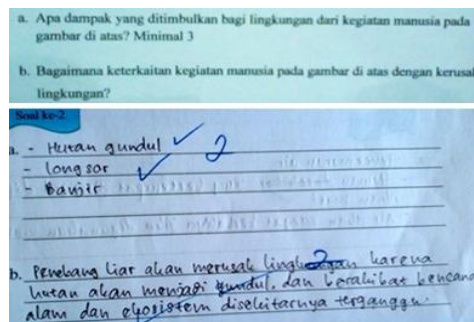 a. Apa dampak yang ditimbulkan bagi lingkungan dari kegiatan manusia pada
gambar di atas? Minimal 3
b. Bagaimana keterkaitan kegiatan manusia pada gambar di atas dengan kerusa
lingkungan?
Soal ke-2
a. - Hutan gundul
- longsor
- Banjir
2
b. Penebang Liar akan merusak lingkungan karena
2
hutan akan menjadi gundul, dan berakibat bencana
alam dan ekosistem disekitarnya terganggu.